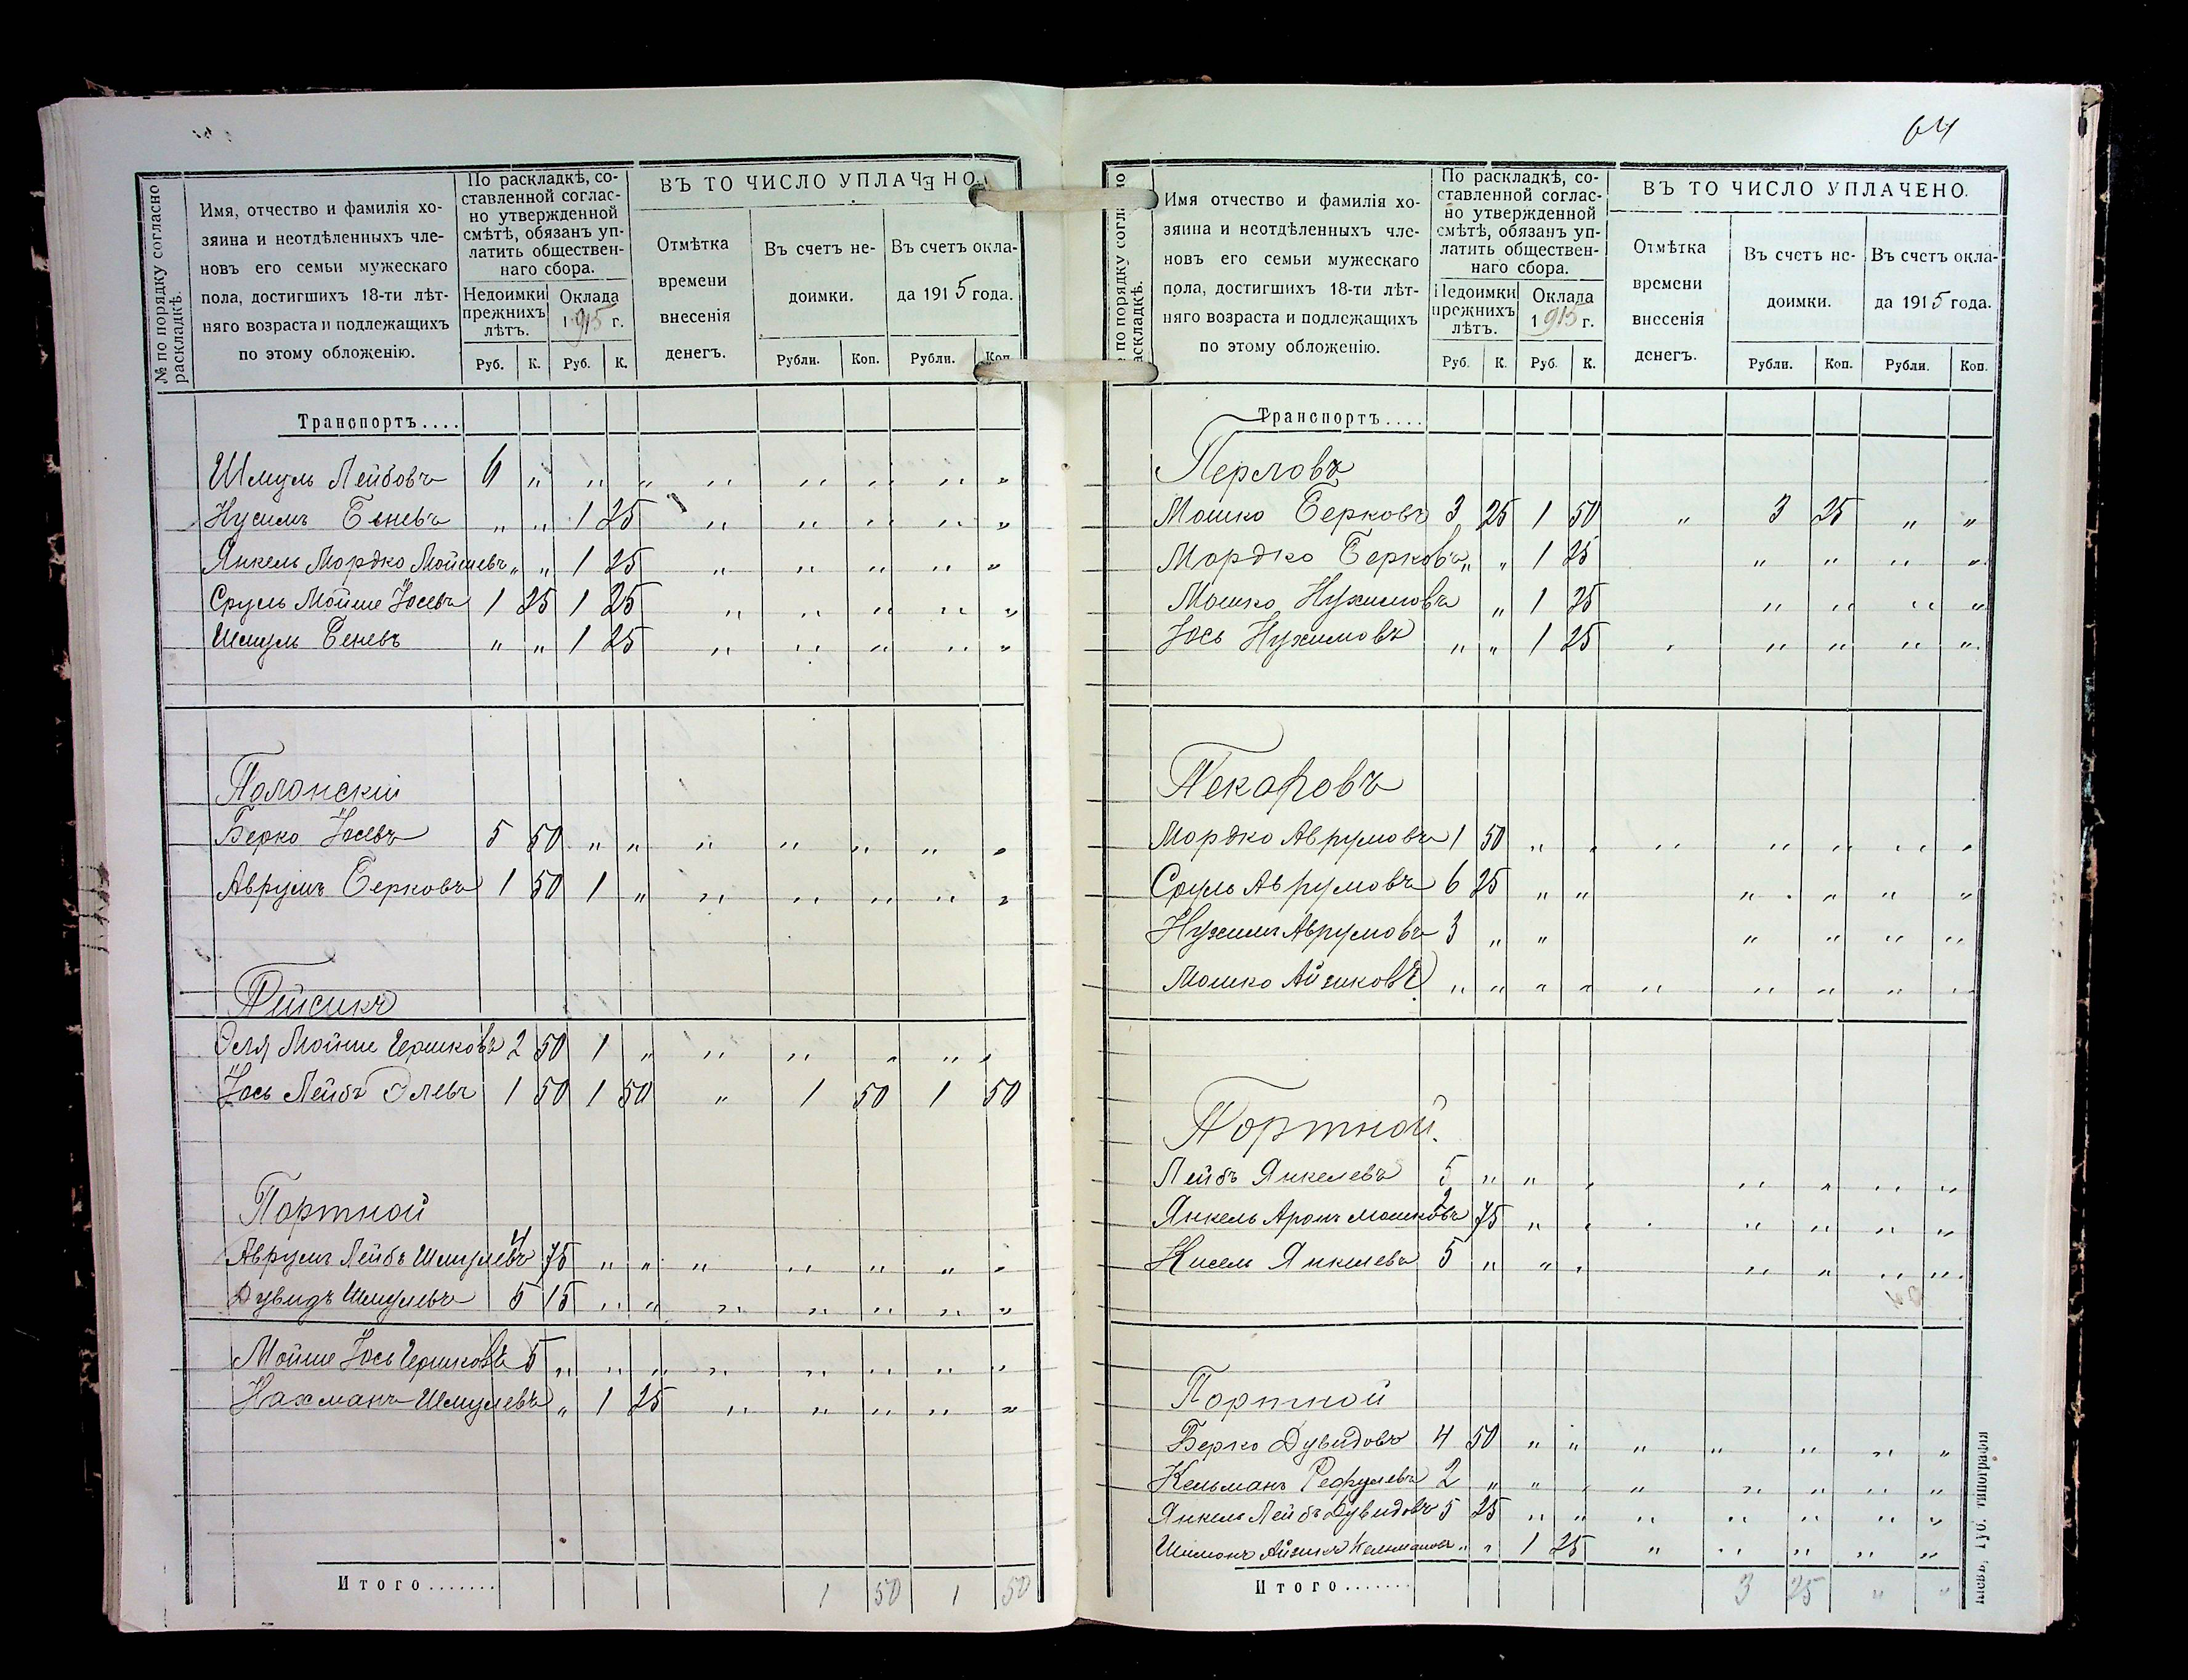 № по порядку согласно раскладкѣ.
Имя, отчество и фамилія хо-
зяина и неотдѣленныхъ чле-
новъ его семьи мужескаго
пола, достигшихъ 18-ти лѣт-
няго возраста и подлежащихъ
по этому обложенію.
По раскладкѣ, со-
ставленной соглас-
но утвержденной
смѣтѣ, обязанъ уп-
латить обществен-
наго сбора.
Недоимки прежнихъ лѣтъ.
Оклада 1915 г.
Руб. К. Руб. К.
ВЪ ТО ЧИСЛО УПЛАЧЕНО.
Отмѣтка
времени
внесенія
денегъ.
Въ счетъ не-
доимки.
Въ счетъ окла-
да 1915 года.
Рубли. Коп. Рубли. Коп.
Транспортъ....
Шмуль Лейбовъ 6 " " " " " " " "
Нусимъ Беневъ " " 1 25 " " " " "
Янкель Мордко Мойшевъ " " 1 25 " " " " "
Сруль Мойше Іосевъ 1 25 1 25 " " " " "
Шмуль Беневъ " " 1 25 " " " " "
Полонскій
Берко Іосевъ 5 50 " " " " " " "
Аврумъ Берковъ 1 50 1 " " " " " "
Фейсикъ
Селя Мойше Гершковъ 2 50 1 " " " " " "
Іось Лейбъ Элевъ 1 50 1 50 " 1 50 1 50
Портной
Аврумъ Лейбъ Шмулевъ 4 75 " " " " " " "
Дувидъ Шмулевъ 5 15 " " " " " " "
Мойше Іось Гершковъ 5 " " " " " " " "
Нахманъ Шмулевъ " 1 25 " " " " "
Итого....... 1 50 1 50
64
№ по порядку согласно раскладкѣ.
Имя отчество и фамилія хо-
зяина и неотдѣленныхъ чле-
новъ его семьи мужескаго
пола, достигшихъ 18-ти лѣт-
няго возраста и подлежащихъ
по этому обложенію.
По раскладкѣ, со-
ставленной соглас-
но утвержденной
смѣтѣ, обязанъ уп-
латить обществен-
наго сбора.
Недоимки прежнихъ лѣтъ.
Оклада 1915 г.
Руб. К. Руб. К.
ВЪ ТО ЧИСЛО УПЛАЧЕНО.
Отмѣтка
времени
внесенія
денегъ.
Въ счетъ не-
доимки.
Въ счетъ окла-
да 1915 года.
Рубли. Коп. Рубли. Коп.
Транспортъ....
Перловъ
Мошко Берковъ 3 25 1 50 " 3 25 " "
Мордко Берковъ " " 1 25 " " " "
Мошко Нухимовъ " 1 25 " " " "
Іось Нухимовъ " " 1 25 " " " " "
Пекаровъ
Мордко Аврумовъ 1 50 " " " " " " "
Сруль Аврумовъ 6 25 " " " " " "
Нухимъ Аврумовъ 3 " " " " " "
Мошко Айзиковъ " " " " " " " " "
Портной.
Лейбъ Янкелевъ 5 " " " " " " "
Янкель Аронъ Мошковъ 2 75 " " " " " "
Кисель Янкелевъ 5 " " " " " " "
Портной
Берко Дувидовъ 4 50 " " " " " " "
Кельманъ Рефулевъ 2 " " " " " " " "
Янкель Лейбъ Дувидовъ 5 25 " " " " " " "
Шимонъ Айзикъ Кельмановъ " " 1 25 " " " " "
Итого....... 3 25 " "
Кіевъ, Губ. типографія